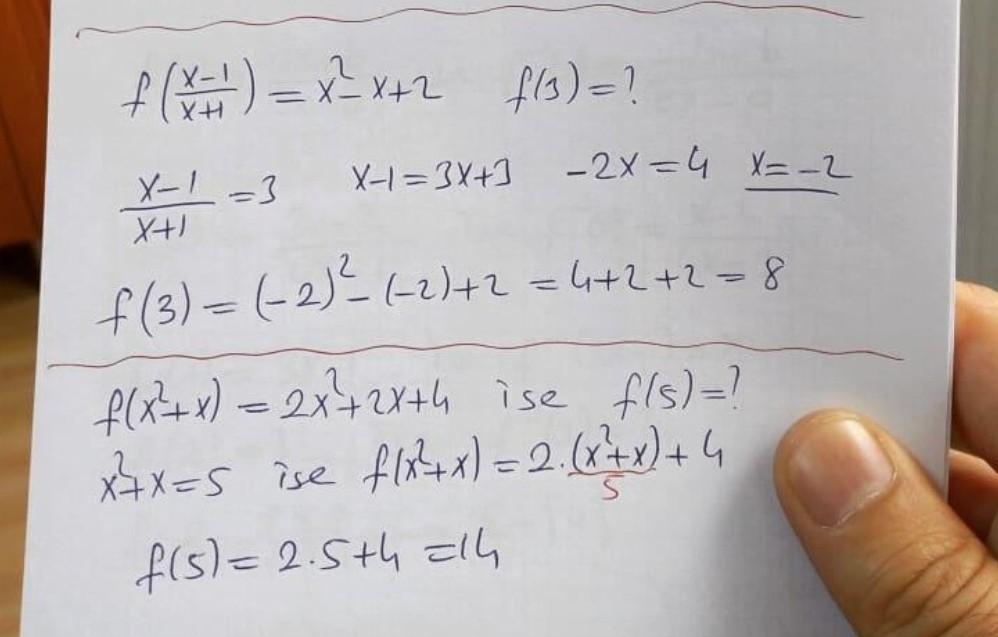 f((x-1)/(x+1)) = x²-x+2 f(3)=?
(x-1)/(x+1) = 3 x-1=3x+3 -2x=4 x=-2
f(3) = (-2)²-(-2)+2 = 4+2+2 = 8
f(x²+x) = 2x²+2x+4 ise f(5)=?
x²+x=5 ise f(x²+x) = 2.(x²+x)+4
5
f(5) = 2.5+4 =14